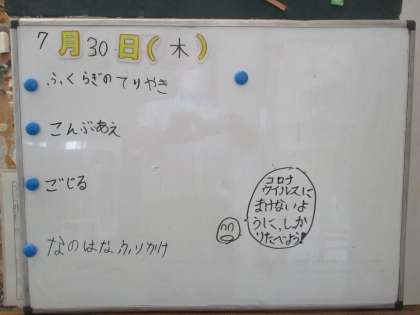 7月30日(木)
ふくらぎのてりやき
こんぶあえ
ごじる
なのはなふりかけ
コロナ
ウイルスに
まけないよ
うに、しっか
りたべよう!